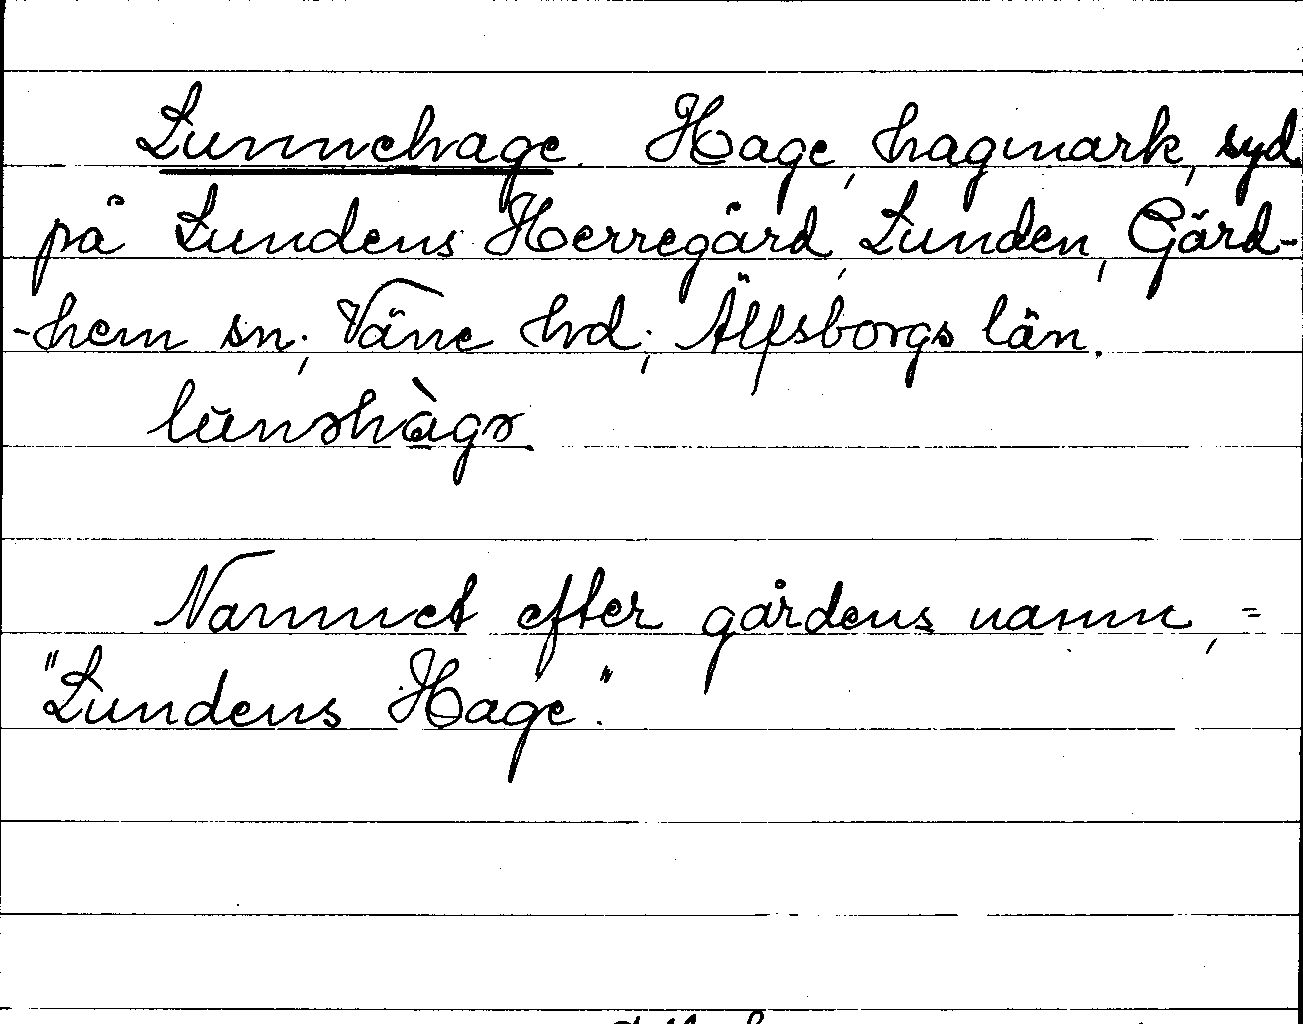 Lunnehage. Hage, hagmark, syd
på Lundens Herregård, Lunden, Gärd-
-hem sn; Väne hd; Älfsborgs län.
lunəhàgə
Namnet efter gårdens namn, =
"Lundens Hage."